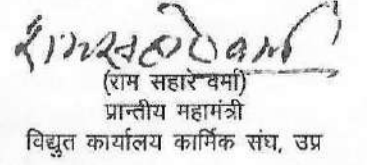 रामसहारे वर्मा
(राम सहारे वर्मा)
प्रान्तीय महामंत्री
विद्युत कार्यालय कार्मिक संघ, उप्र